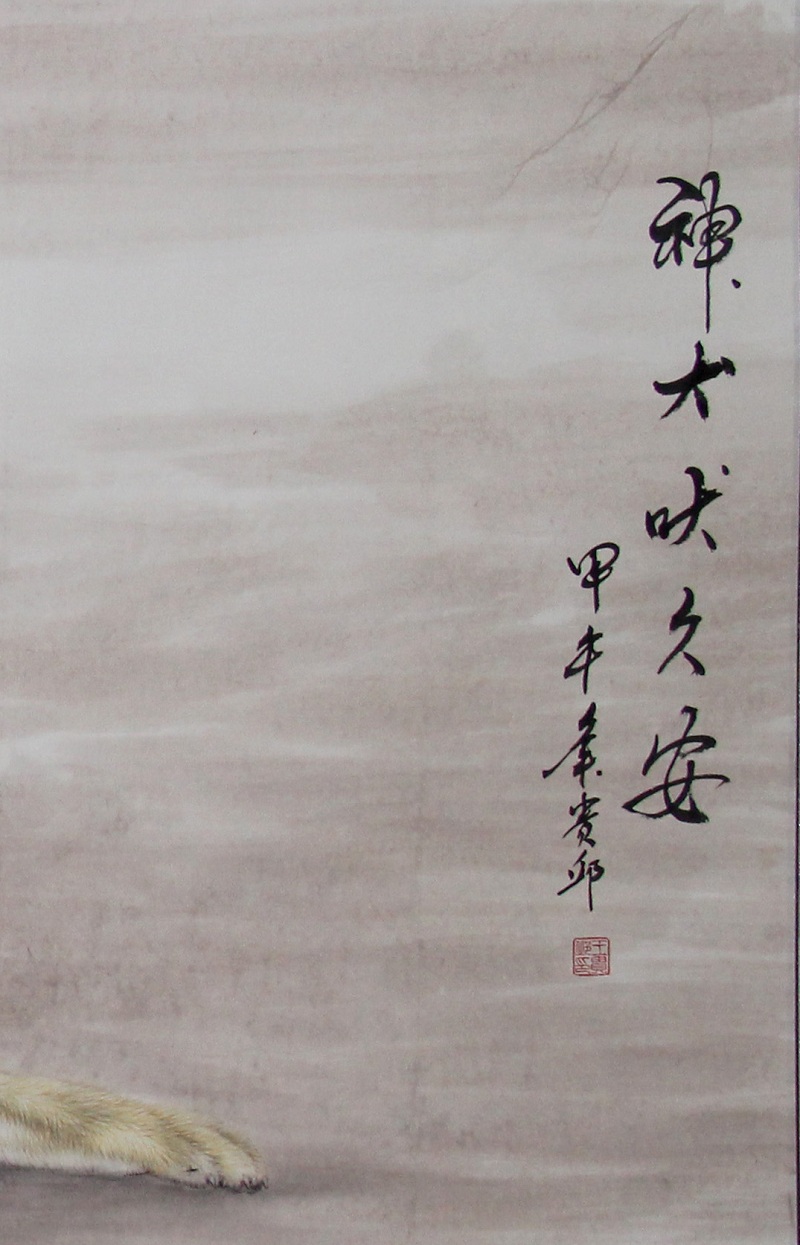 神犬吠久安
甲午年贵邱